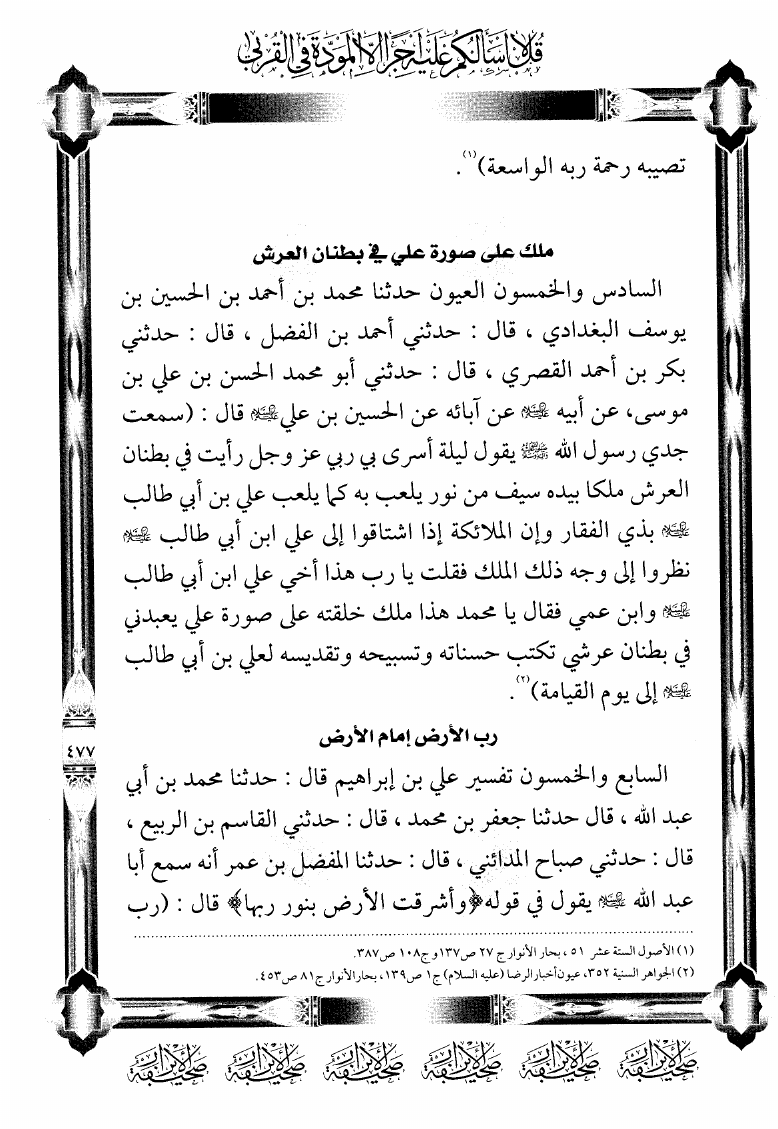 قل لا أسألكم عليه أجرا إلا المودة في القربى
تصيبه رحمة ربه الواسعة)(١).
ملك على صورة علي في بطنان العرش
السادس والخمسون العيون حدثنا محمد بن أحمد بن الحسين بن
يوسف البغدادي ، قال : حدثني أحمد بن الفضل ، قال : حدثني
بكر بن أحمد القصري ، قال : حدثني أبو محمد الحسن بن علي بن
موسى، عن أبيه عليه السلام عن آبائه عن الحسين بن علي عليه السلام قال : (سمعت
جدي رسول الله ﷺ يقول ليلة أسرى بي ربي عز وجل رأيت في بطنان
العرش ملكا بيده سيف من نور يلعب به كما يلعب علي بن أبي طالب
عليه السلام بذي الفقار وإن الملائكة إذا اشتاقوا إلى علي ابن أبي طالب عليه السلام
نظروا إلى وجه ذلك الملك فقلت يا رب هذا أخي علي ابن أبي طالب
عليه السلام وابن عمي فقال يا محمد هذا ملك خلقته على صورة علي يعبدني
في بطنان عرشي تكتب حسناته وتسبيحه وتقديسه لعلي بن أبي طالب
عليه السلام إلى يوم القيامة)(٢).
رب الأرض إمام الأرض
٤٧٧
السابع والخمسون تفسير علي بن إبراهيم قال : حدثنا محمد بن أبي
عبد الله ، قال حدثنا جعفر بن محمد ، قال : حدثني القاسم بن الربيع ،
قال : حدثني صباح المدائني ، قال : حدثنا المفضل بن عمر أنه سمع أبا
عبد الله عليه السلام يقول في قوله ﴿وأشرقت الأرض بنور ربها﴾ قال : (رب
(١) الأصول الستة عشر ٥١ ، بحار الأنوار ج ٢٧ ص١٣٧ و ج١٠٨ ص٣٨٧.
(٢) الجواهر السنية ٣٥٢، عيون أخبار الرضا (عليه السلام) ج١ ص١٣٩، بحار الأنوار ج٨١ ص٤٥٣.